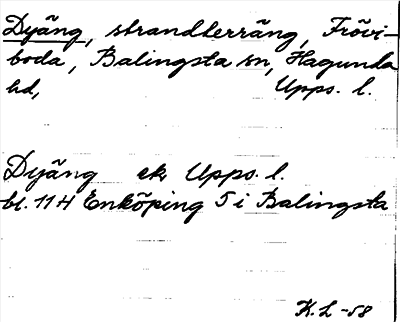 Dyäng, strandterräng, Frövi-
boda, Balingsta sn, Hagunda
hd, Upps. l.
Dyäng ek Upps. l.
bl. 114 Enköping 5 i Balingsta
K.L -58